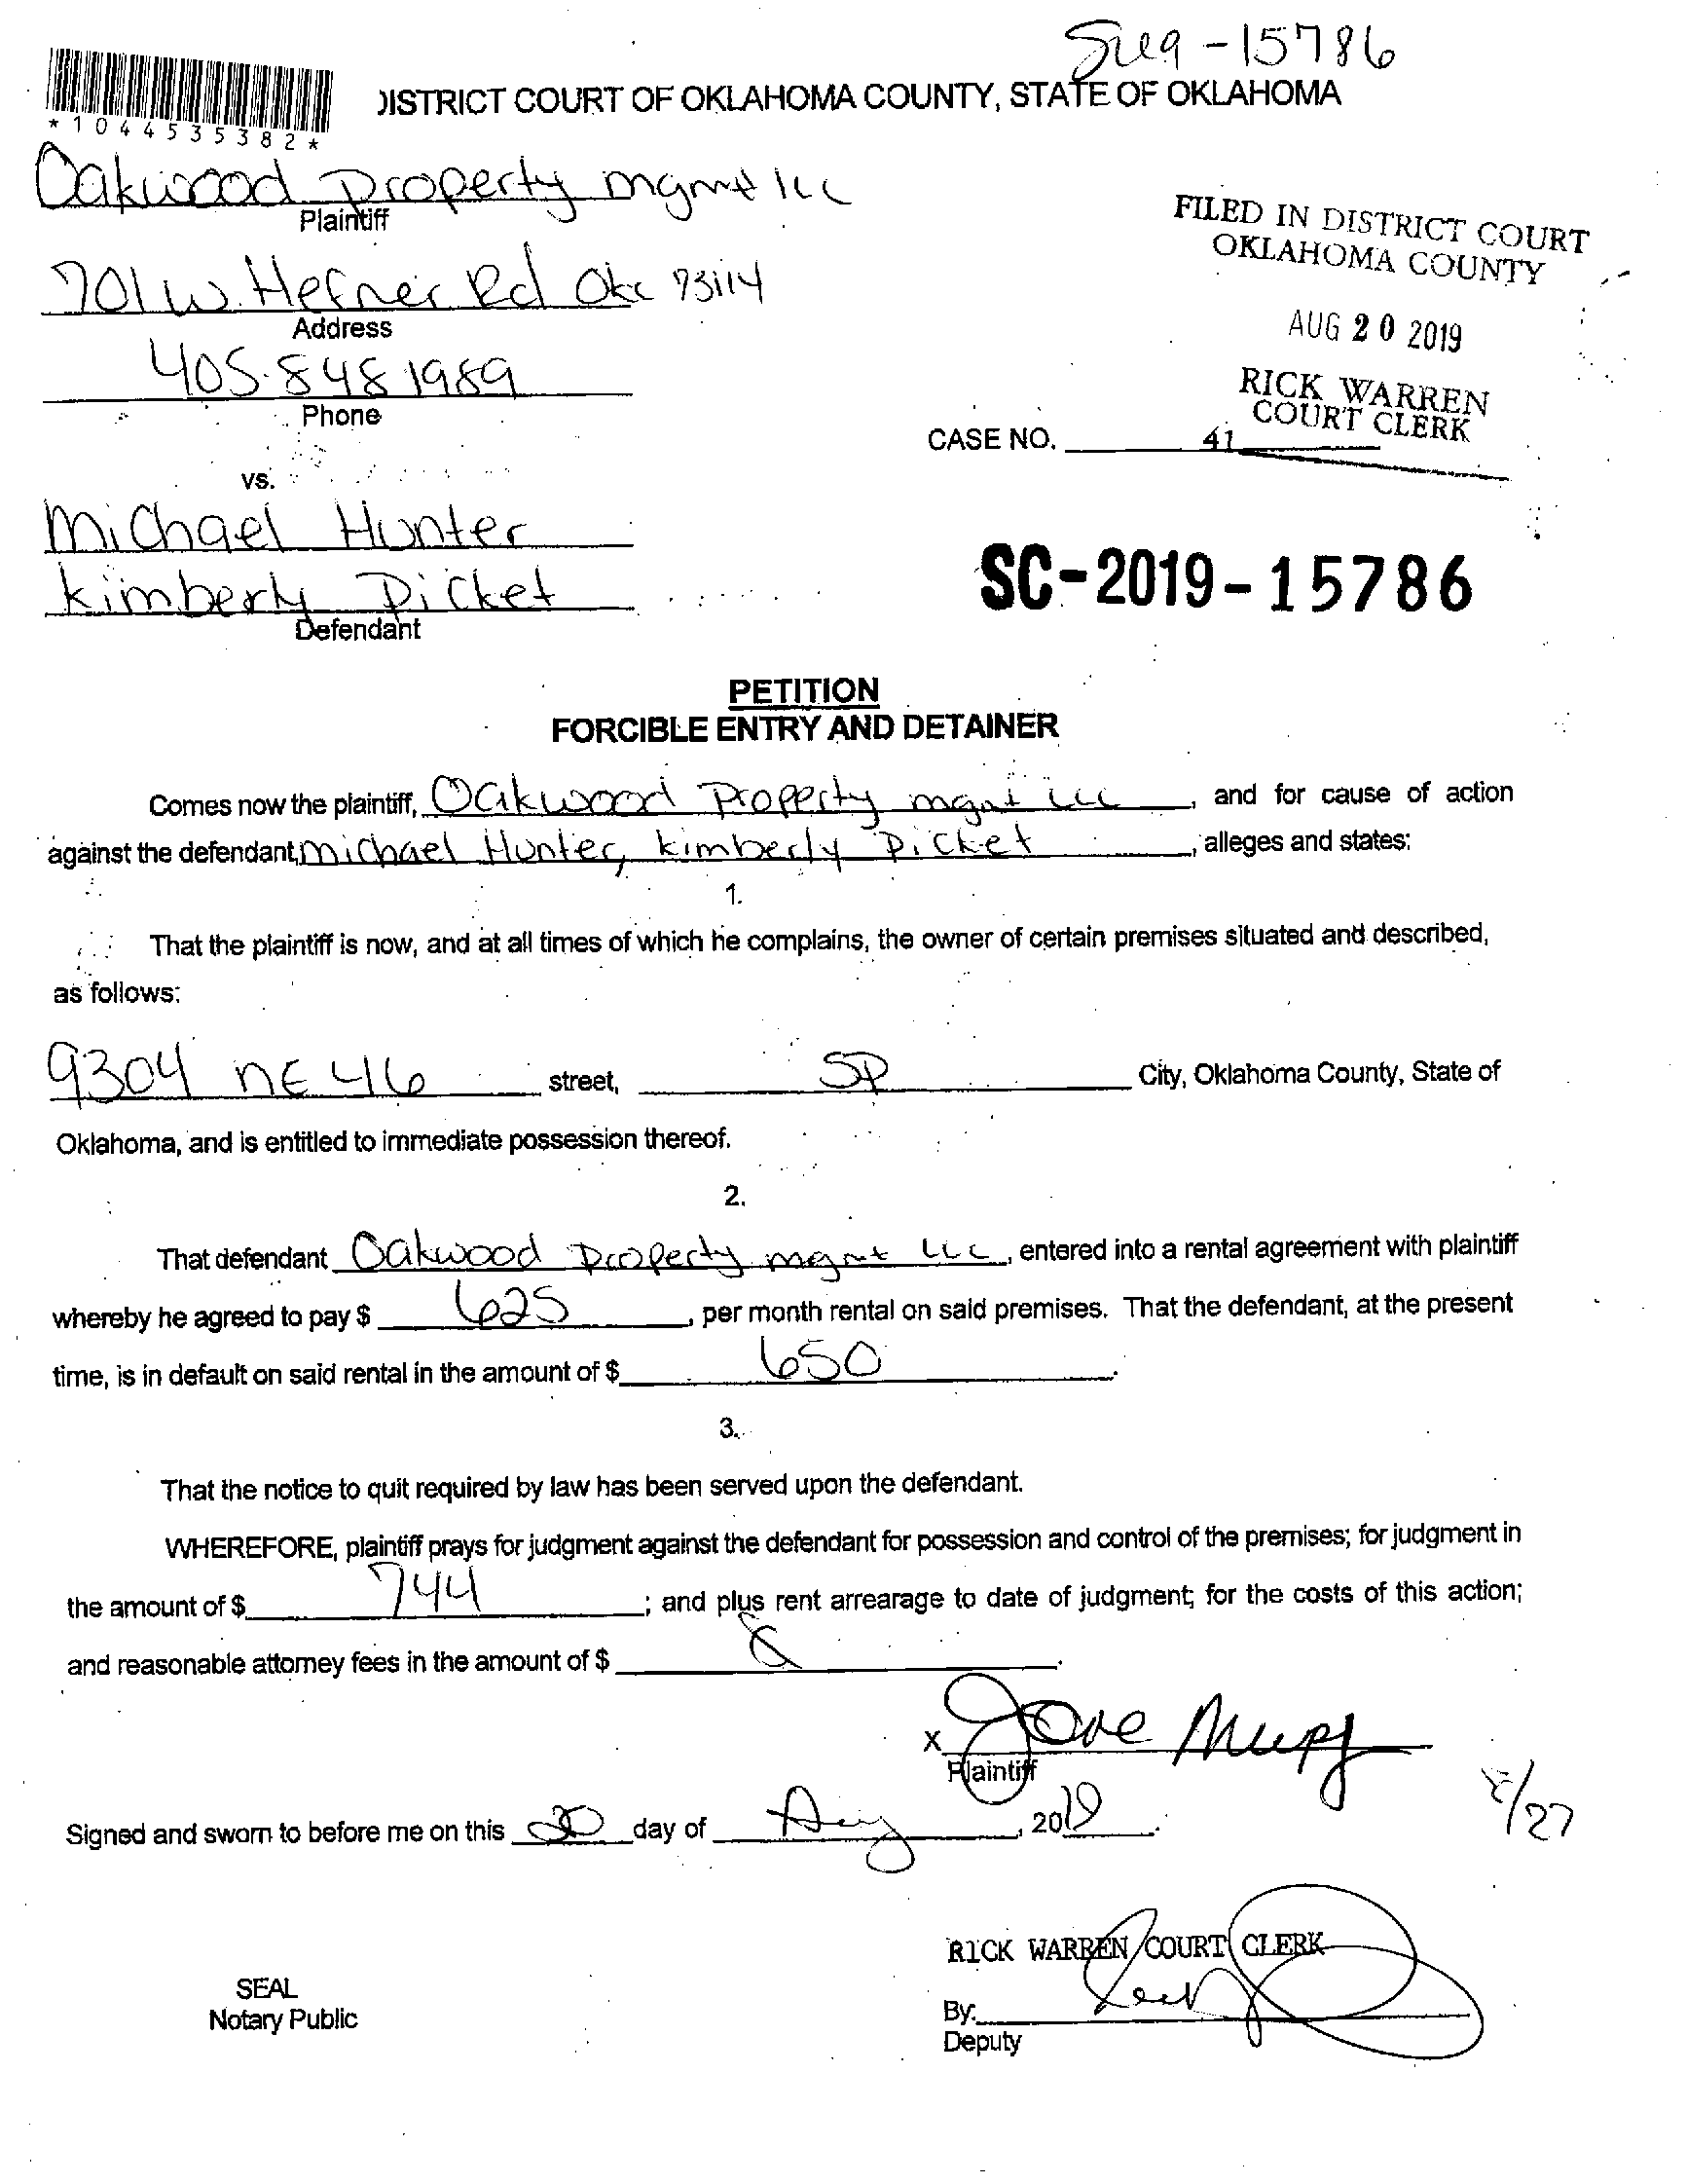 -15786
*1044535382*
DISTRICT COURT OF OKLAHOMA COUNTY, STATE OF OKLAHOMA
Oakwood Property mgmt llc
Plaintiff
FILED IN DISTRICT COURT
OKLAHOMA COUNTY
701 W. Hefner Rd Okc 73114
Address
AUG 20 2019
405-848 1989
Phone
RICK WARREN
COURT CLERK
CASE NO. 41
vs.
Michael Hunter
Kimberly Picket
Defendant
SC-2019-15786
PETITION
FORCIBLE ENTRY AND DETAINER
Comes now the plaintiff, Oakwood Property mgmt LLC, and for cause of action
against the defendant, Michael Hunter, Kimberly Picket, alleges and states:
1.
That the plaintiff is now, and at all times of which he complains, the owner of certain premises situated and described,
as follows:
9304 NE 46 street, SP City, Oklahoma County, State of
Oklahoma, and is entitled to immediate possession thereof.
2.
That defendant Oakwood Property mgmt LLC, entered into a rental agreement with plaintiff
whereby he agreed to pay $ 625, per month rental on said premises. That the defendant, at the present
time, is in default on said rental in the amount of $ 650.
3.
That the notice to quit required by law has been served upon the defendant.
WHEREFORE, plaintiff prays for judgment against the defendant for possession and control of the premises; for judgment in
the amount of $ 744; and plus rent arrearage to date of judgment; for the costs of this action;
and reasonable attorney fees in the amount of $ .
X
Plaintiff
8/27
Signed and sworn to before me on this 20 day of Aug, 2019.
RICK WARREN COURT CLERK
SEAL
Notary Public
By:
Deputy